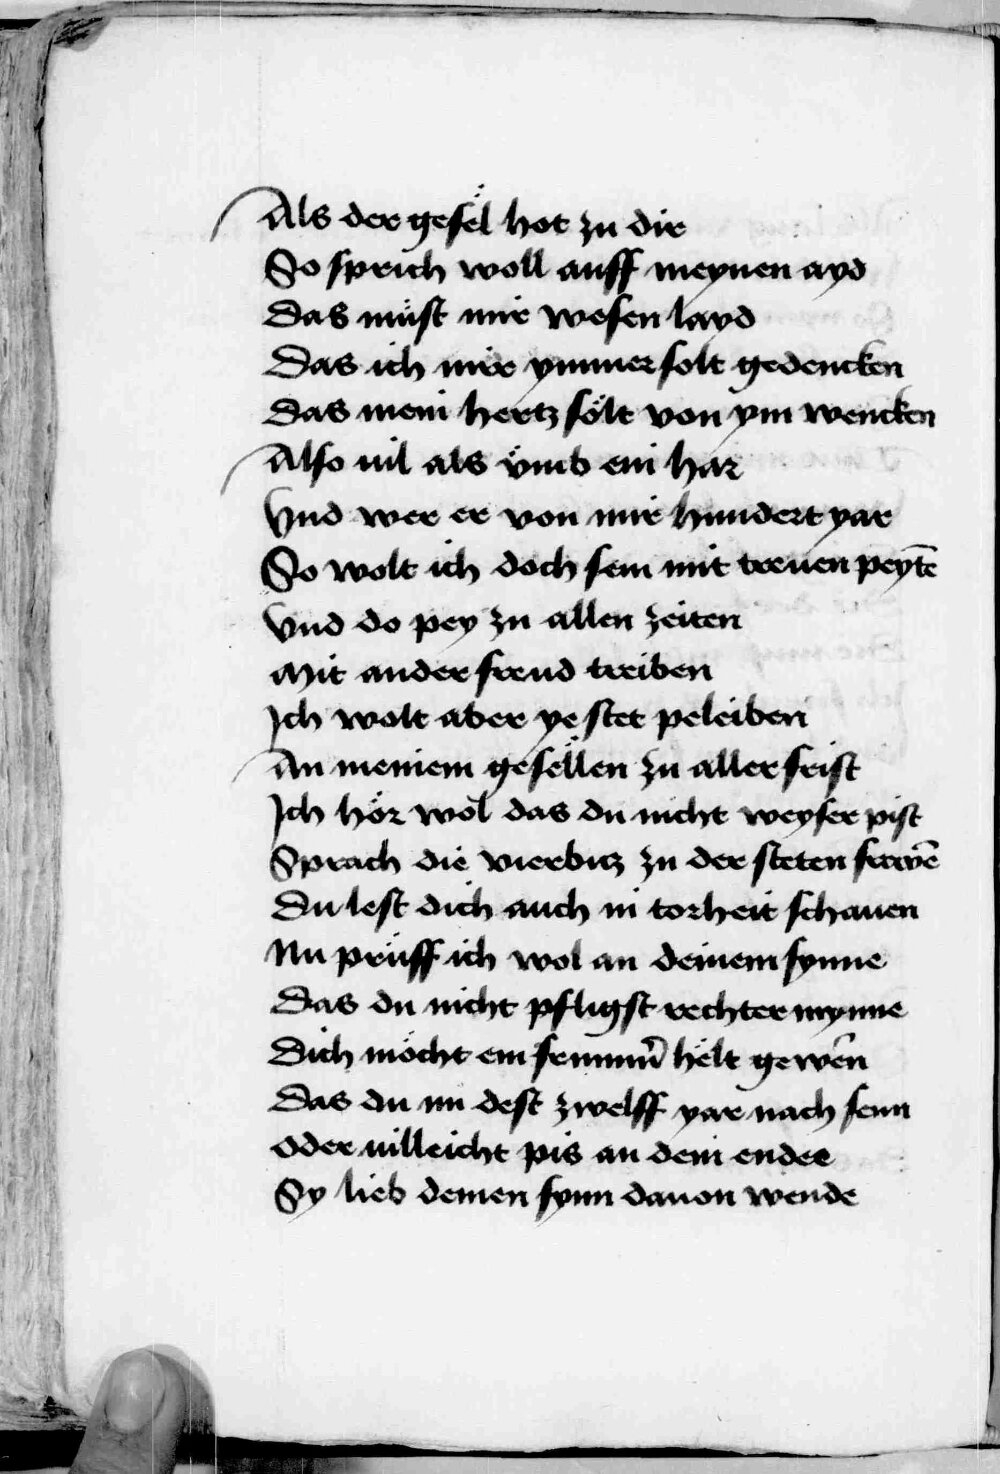 Als der gesël hot zu dir
So sprich woll auff meynen ayd
Das müst mir wesen layd
Das ich mir ymmer solt gedencken
Das mein hertz sölt von ym wencken
Also vil als vmb ein här
Vnd wer er von mir hundert yar
So wolt ich doch sein mit trewen peytē
Vnd do pey zu allen zeiten
Mit ander freud treiben
Ich wolt aber ye stet peleiben
An meinem gesëllen zu aller frist
Ich hör wol das du nicht weyser pist
Sprach die vierbitz zu der steten frawē
Du lest dich auch in torheit schauen
Nu prüff ich wol an deinem synne
Das du nicht pfligst rechter mynne
Dich möcht ein frummer hëlt gewēn
Das du im dest zwelff yar nach senn
Oder villeicht pis an dein ende
Sy lieb deinen synn dauon wende